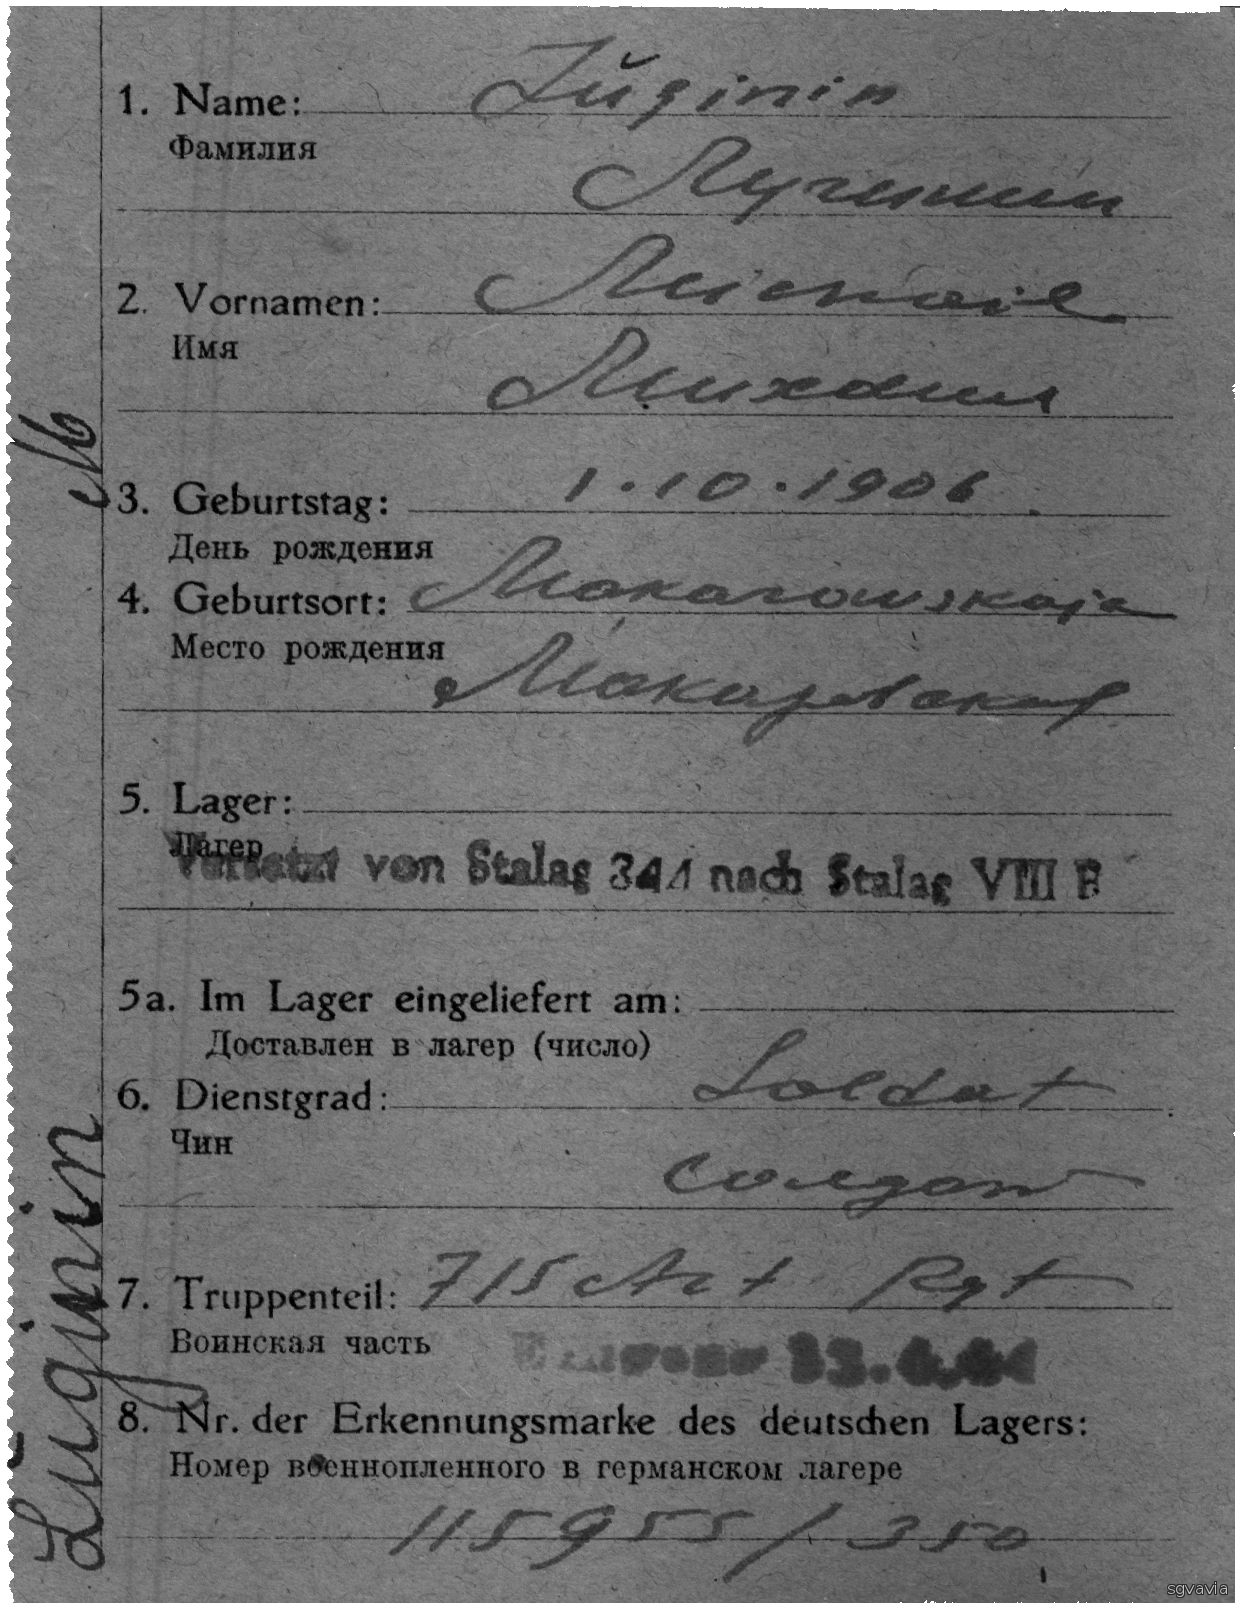 1. Name: Lŭginin
Фамилия
Лугинин
2. Vornamen: Michail
Имя
Михаил
3. Geburtstag: 1.10.1906
День рождения
4. Geburtsort: Makarowskaja
Место рождения
Макаровская
5. Lager:
Лагер
Versetzt von Stalag 344 nach Stalag VIII B
5a. Im Lager eingeliefert am:
Доставлен в лагер (число)
6. Dienstgrad: Soldat
Чин
солдат
7. Truppenteil: 715 Art Rgt
Воинская часть
8. Nr. der Erkennungsmarke des deutschen Lagers:
Номер военнопленного в германском лагере
115955/350
Lŭginin M
sgvavia